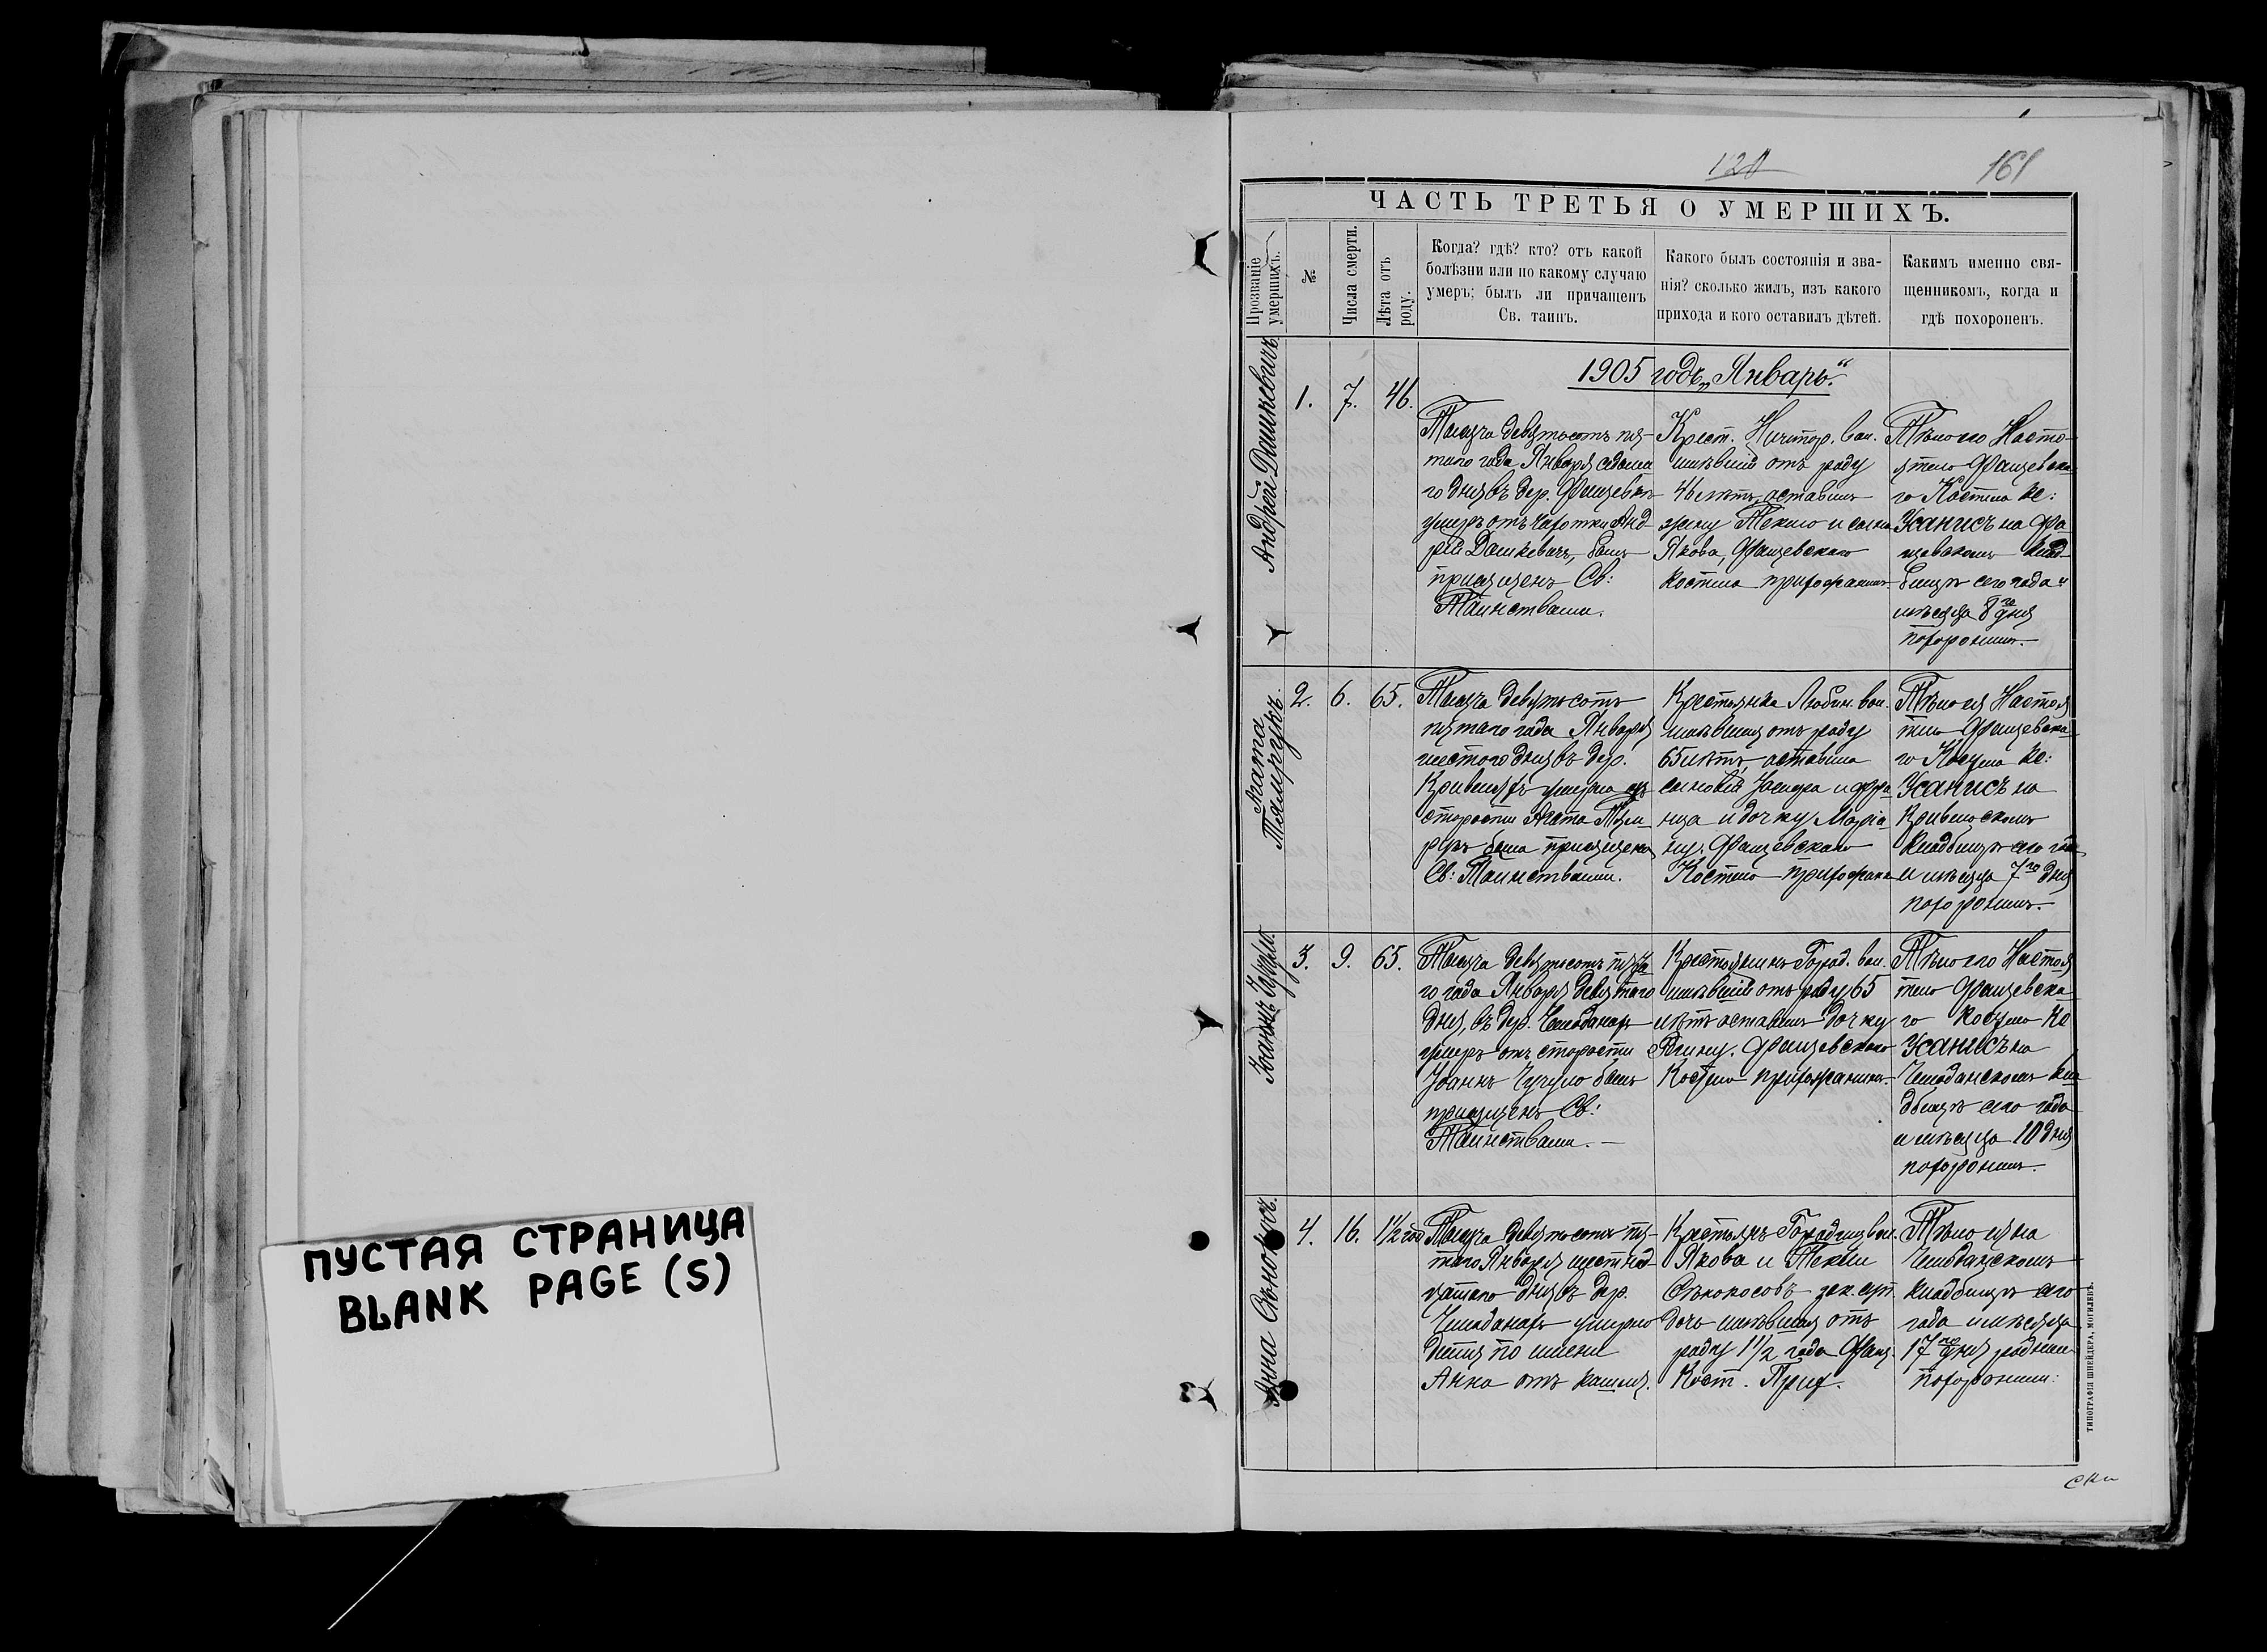 ПУСТАЯ СТРАНИЦА
BLANK PAGE (S)
120
161
ЧАСТЬ ТРЕТЬЯ О УМЕРШИХЪ.
Прозваніе умершихъ.
№
Числа смерти.
Лѣта отъ роду.
Когда? гдѣ? кто? отъ какой
болѣзни или по какому случаю
умеръ; былъ ли причащенъ
Св. таинъ.
Какого былъ состоянія и зва-
нія? сколько жилъ, изъ какого
прихода и кого оставилъ дѣтей.
Какимъ именно свя-
щенникомъ, когда и
гдѣ похороненъ.
1905 годъ „Январь“.
Андрей Дашкевичъ
1.
7.
46.
Тысяча девятьсотъ пя-
таго года Января седьма
го дня въ дер. Фащевкѣ
умеръ отъ чахотки Анд-
рей Дашкевичъ, былъ
приобщенъ Св:
Таинствами.
Крест. вол.
имѣвшій отъ роду
46 лѣтъ, оставилъ
жену Теклю и сына
Якова, Фащевскаго
костела прихожанинъ.
Тѣло его Насто-
ятель Фащевска-
го Костела Кс:
на Фа
щевскомъ клад-
бищѣ сего года и
мѣсяца 8го дня
похоронилъ.
Агата
2.
6.
65.
Тысяча девятьсотъ
пятаго года Января
шестого дня въ дер.
умерла отъ
старости Агата
была приобщена
Св: Таинствами.
Крестьянка вол.
имѣвшая отъ роду
65 лѣтъ, оставила
сыновей и Фра
нца и дочку Маріа-
ну. Фащевскаго
Костела прихожанка
Тѣло ея Настоя
тель Фащевска-
го Костела Кс:
на
кладбищѣ сего года
и мѣсяца 7го дня
похоронилъ.
Іоаннъ
3.
9.
65.
Тысяча девятьсотъ пята
го года Января девятаго
дня, въ дер. Чемоданахъ
умеръ отъ старости
Іоаннъ былъ
приобщенъ Св:
Таинствами.
Крестьянинъ Город. вол.
имѣвшій отъ роду 65
лѣтъ оставилъ дочку
Фащевскаго
Костела прихожанинъ.
Тѣло его Настоя
тель Фащевска-
го Костела Кс
на
Чемоданскомъ кла
дбищѣ сего года
и мѣсяца 10 дня
похоронилъ.
Анна
4.
16.
1½ год
Тысяча девятьсотъ пя-
таго Января шестнад-
цатаго дня въ дер.
Чемоданахъ умерло
дитя по имени
Анна отъ кашля.
Крестьянъ вол.
Якова и Текли
Сѣнокосовъ
дочь имѣвшая отъ
роду 1½ года Фащ.
Кост. Прих.
Тѣло ея на
Чемоданскомъ
кладбищѣ сего
года и мѣсяца
17го дня родные
похоронили.
ТИПОГРАФІЯ ШНЕЙДЕРА, МОГИЛЕВЪ.